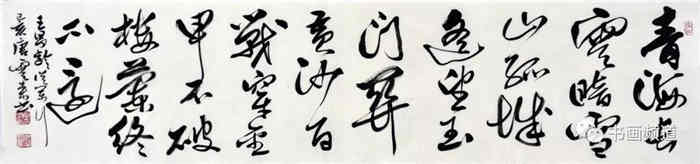 青海長
雲暗雪
山孤城
遙望玉
門關
黃沙百
戰穿金
甲不破
樓蘭終
不還
王昌齡從軍行
书画频道